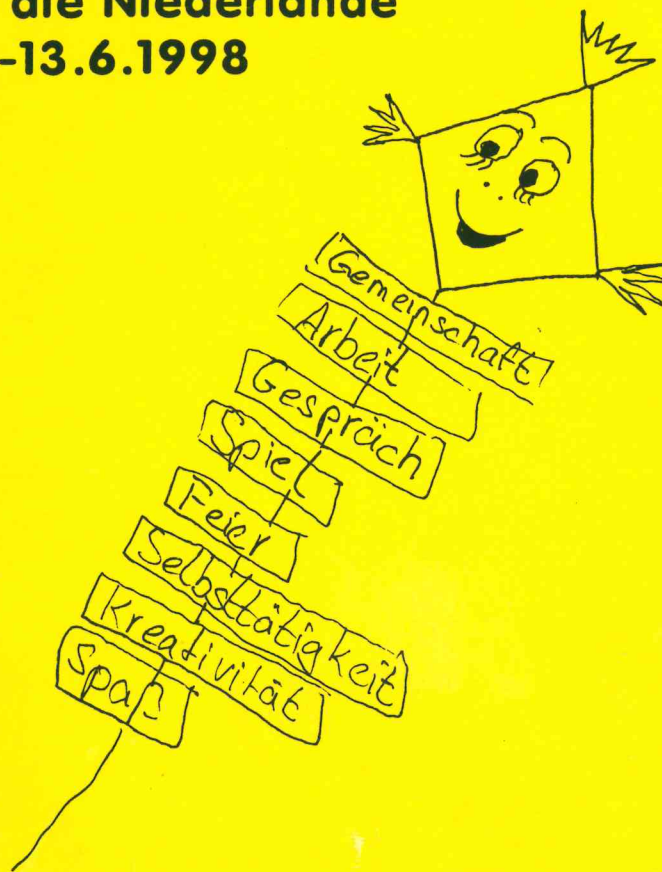 die Niederlande
-13.6.1998
Gemeinschaft
Arbeit
Gespräch
Spiel
Feier
Selbsttätigkeit
Kreativität
Spaß